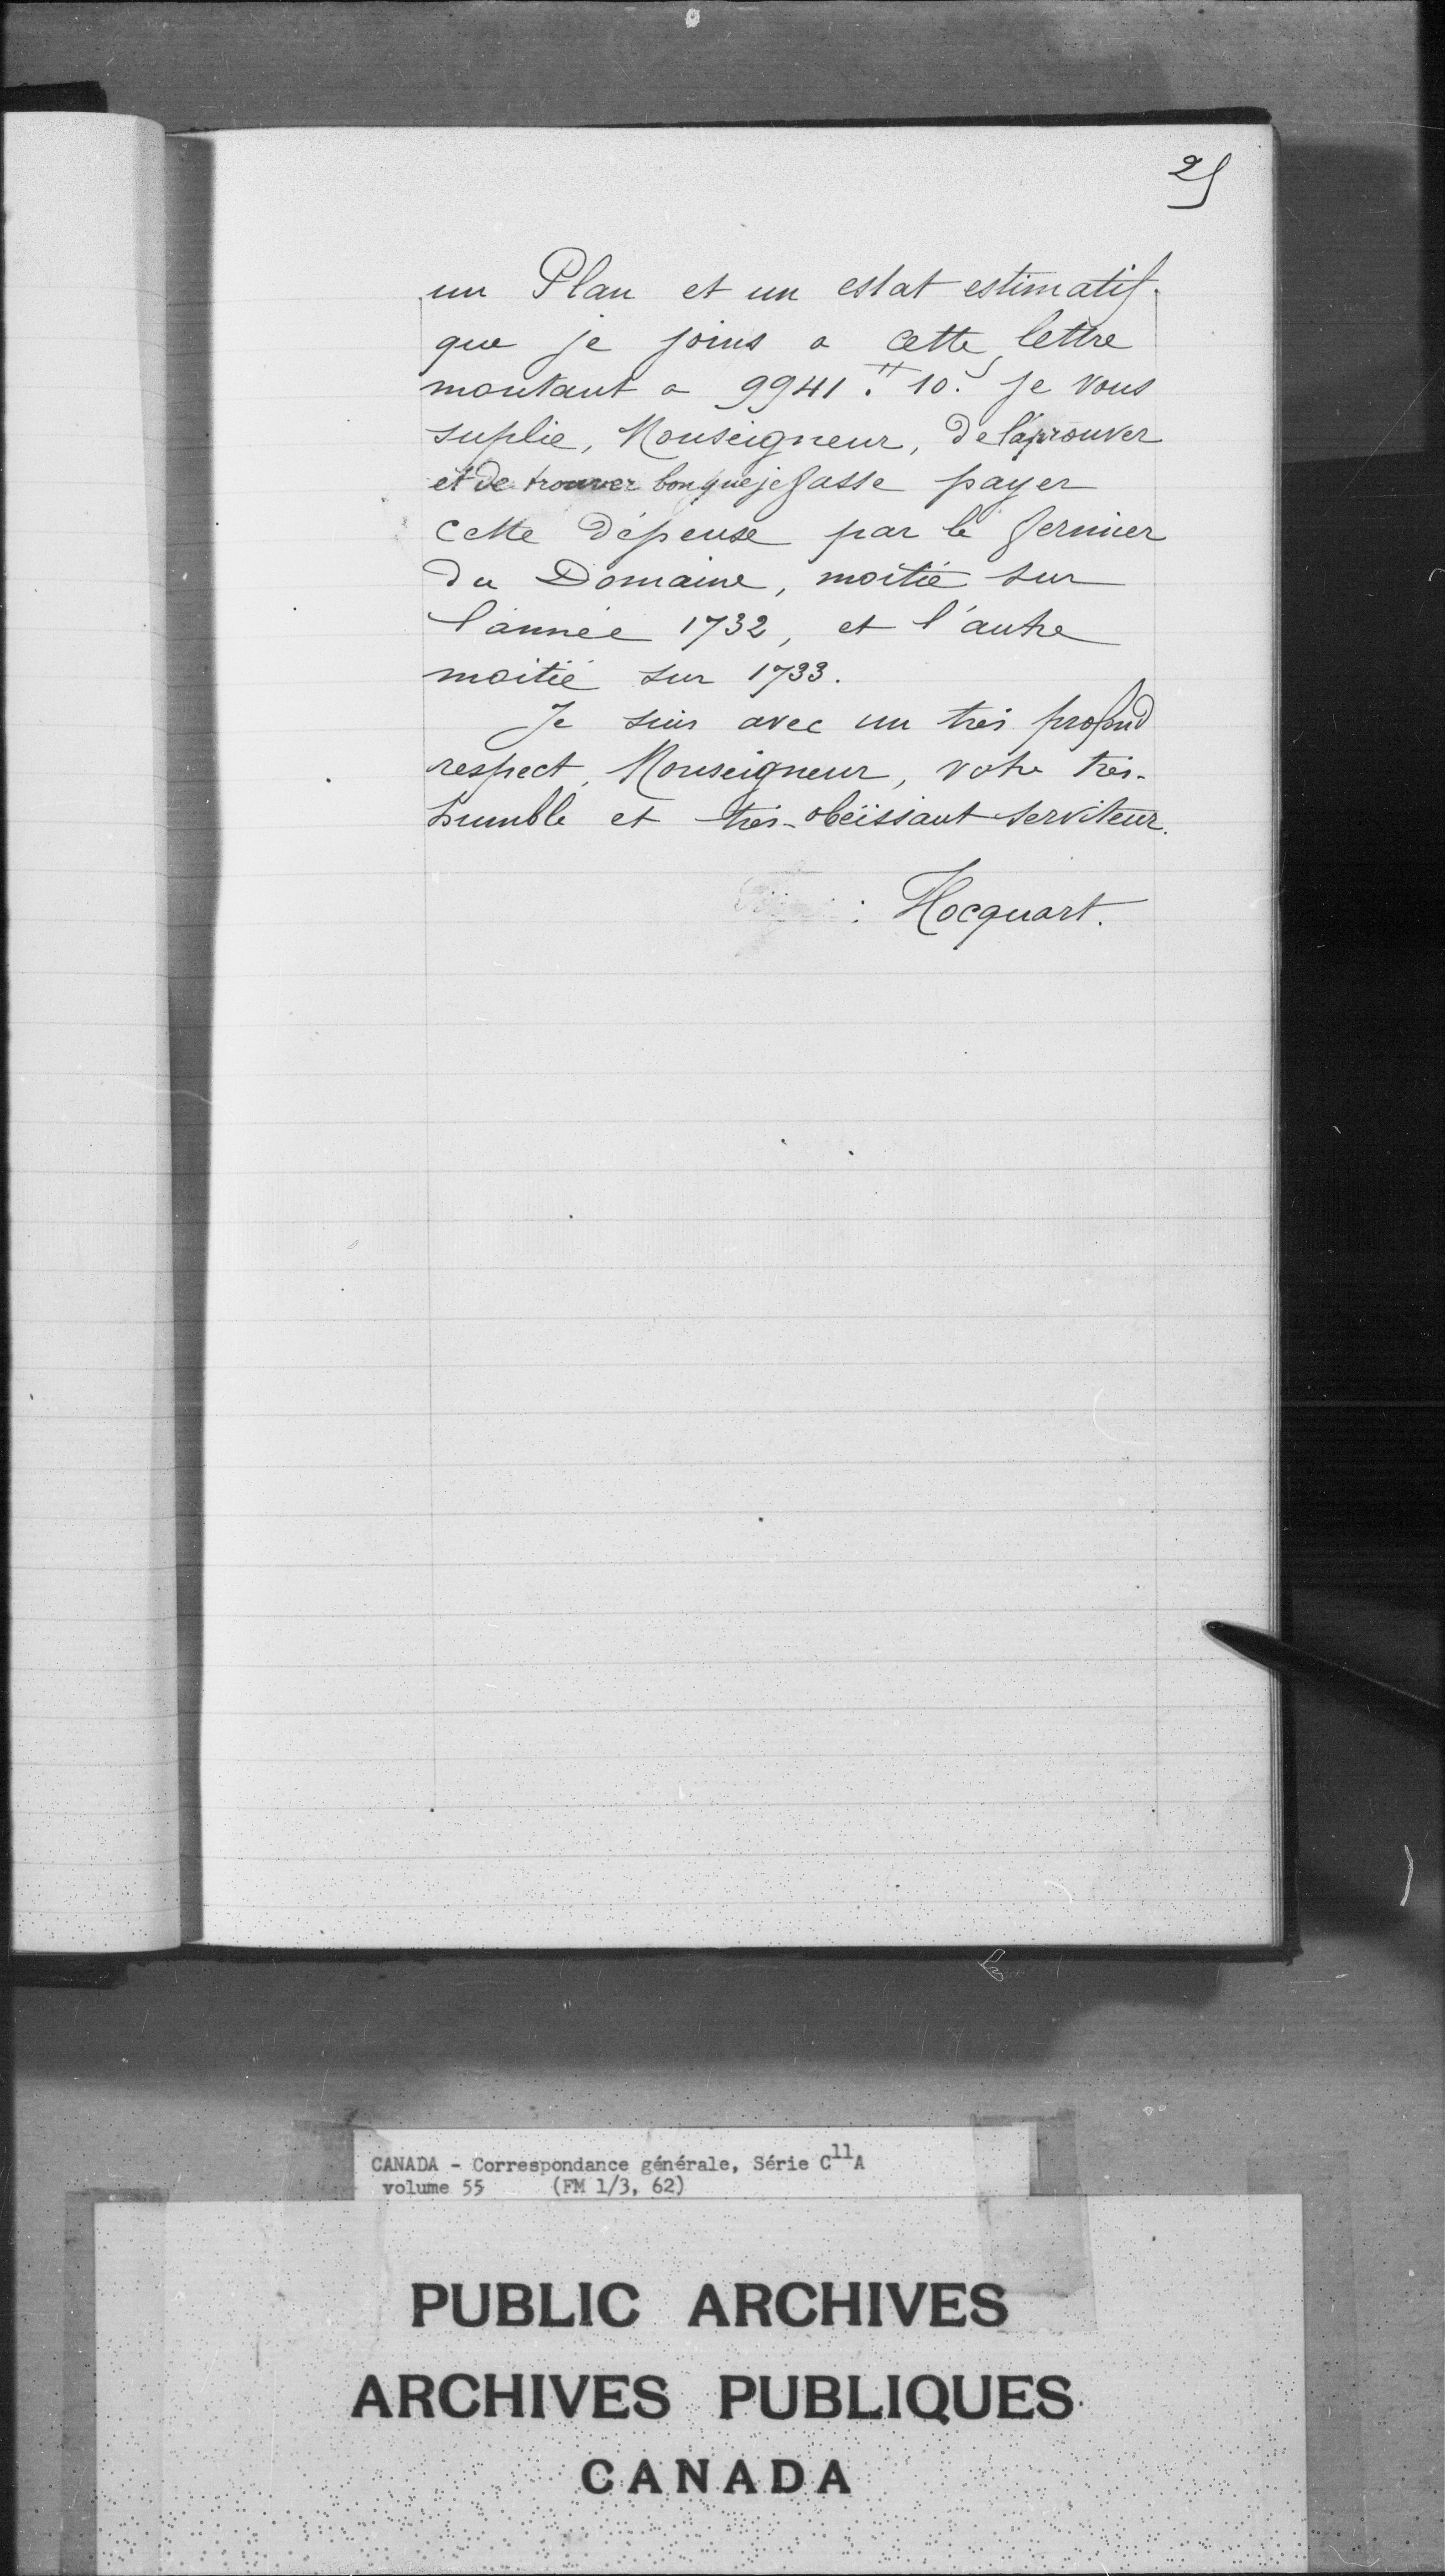 25
un Plan et un estat estimatif
que je joins a cette lettre
montant a 9941.tt 10.s je vous
suplie, Monseigneur, de l'aprouver
et de trouver bon que je fasse payer
cette dépense par le fermier
du Domaine, moitié sur
l'année 1732, et l'autre
moitié sur 1733.
Je suis avec un très profond
respect, Monseigneur, votre très-
humble et très-obéissant serviteur.
: Hocquart.
CANADA - Correspondance générale, Série C11A
volume 55 (FM 1/3, 62)
PUBLIC ARCHIVES
ARCHIVES PUBLIQUES
CANADA